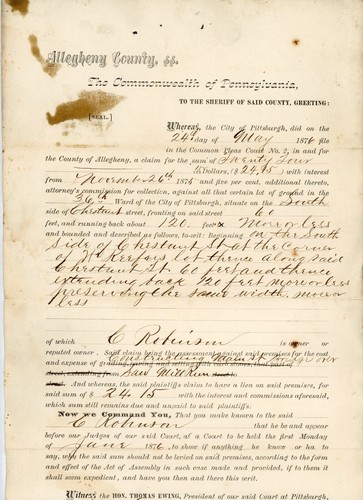 Allegheny County, ss.
The Commonwealth of Pennsylvania,
TO THE SHERIFF OF SAID COUNTY, GREETING:
[SEAL.]
Whereas, the City of Pittsburgh, did on the
24th day of May 1876 file
in the Common Pleas Court No. 2, in and for
the County of Allegheny, a claim for the sum of Twenty Four
Dollars, ($24.15) with interest
from November 26th 1875 and five per cent. additional thereto,
attorney's commission for collection, against all that certain lot of ground in the
36th Ward of the City of Pittsburgh, situate on the South
side of Chestnut street, fronting on said street 60
feet, and running back about 120 feet More or less
and bounded and described as follows, to-wit: Beginning on the South
side of Chestnut St at the Corner
of lot thence along said
Chestnut St. 60 feet and thence
extending back 120 feet more or less
preserving the same width more or
less
of which C Robinson is owner or
reputed owner. Said claim being the assessment against said premises for the cost
and expense of Constructing Main St Bridge over
Saw Mill Run
And whereas, the said plaintiffs claim to have a lien on said premises, for
said sum of $24.15 with the interest and commissions aforesaid,
which sum still remains due and unpaid to said plaintiffs.
Now we Command You, That you make known to the said
C Robinson that he be and appear
before our Judges of our said Court, at a Court to be held the first Monday
of June 1876, to show if anything he know or has to
say, why the said sum should not be levied on said premises, according to the form
and effect of the Act of Assembly in such case made and provided, if to them it
shall seem expedient, and have you then and there this writ.
Witness the HON. THOMAS EWING, President of our said Court, at Pittsburgh,